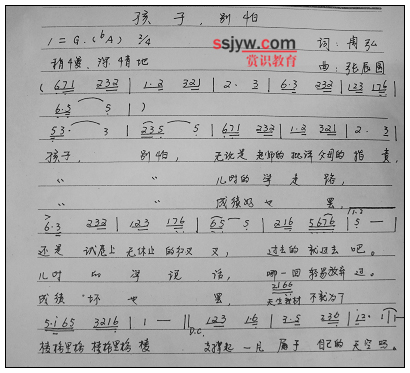 孩子,别怕
1 = G.(♭A) 3/4
词:周弘
稍慢、深情地
曲:张辰园
ssjyw.com
赏识教育
( 671 232 | 1·2 321 | 2 · 3 | 6·3 232 | 123 176 |
6·5 5 | )
53· 3 | 235· 5 | 671 232 | 1·2 321 | 2 · 3 |
孩子, 别怕, 无论是老师的批评父母的指责,
〃 〃 儿时的学走路,
〃 〃 成绩好也罢
6·3 232 | 123 176 | 65 5 | 216 5676 | 5 — |
还是 试卷上无休止的打叉叉, 过去的就过去吧。
儿时的学说话, 哪一回轻易放弃过。
2166
成绩坏也罢, 天生我材不就为了
5·165 3216 | 1 — ‖ D.C. 123 16 | 2·5 236 |
楞格里格楞格里格楞 支撑起一片属于自己的天空吗。